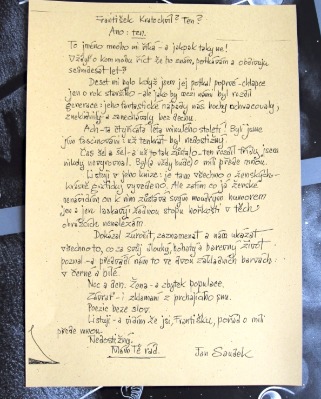 František Kratochvíl? Ten?
Ano: ten.
To jméno mnoho mi říká - a jakpak taky ne!
Vždyť o kom mohu říct že ho znám, potkávám a obdivuju
sedmdesát let?
Deset mi bylo když jsem jej potkal poprvé - chlapce
jen o rok staršího - ale jako by mezi námi byl rozdíl
generace: jeho fantastické nápady nás hochy ochvacovaly,
zneklidnily a zanechávaly bez dechu.
Ach - ta čtyřicátá léta minulého století! Byl jsem
jím fascinován: už tenkrát byl nedostižný.
Čas šel a šel a už to tak zůstalo - ten rozdíl třídy jsem
nikdy nevyrovnal. Byl a vždy bude o míli přede mnou.
Listuji v jeho knize: je tam všechno o ženských -
krásně poeticky vyvedeno. Ale zatím co já ženské
nenávidím on k nim zůstává svým moudrým humorem
jen a jen laskavý: žádnou stopu hořkosti v těch
obrázcích nenalézám.
Dokázal zúročit, zaznamenat a nám ukázat
všechno to, co za svůj dlouhý, bohatý a barevný život
poznal - a předvádí nám to ve dvou základních barvách
v černé a bílé.
Noc a den. Žena - a zbytek populace.
Závrať - i zklamání z prchajícího snu.
Poezie beze slov.
Listuji - a vidím že jsi, Františku, pořád o míli
přede mnou.
Nedostižný.
Mám Tě rád.
Jan Saudek